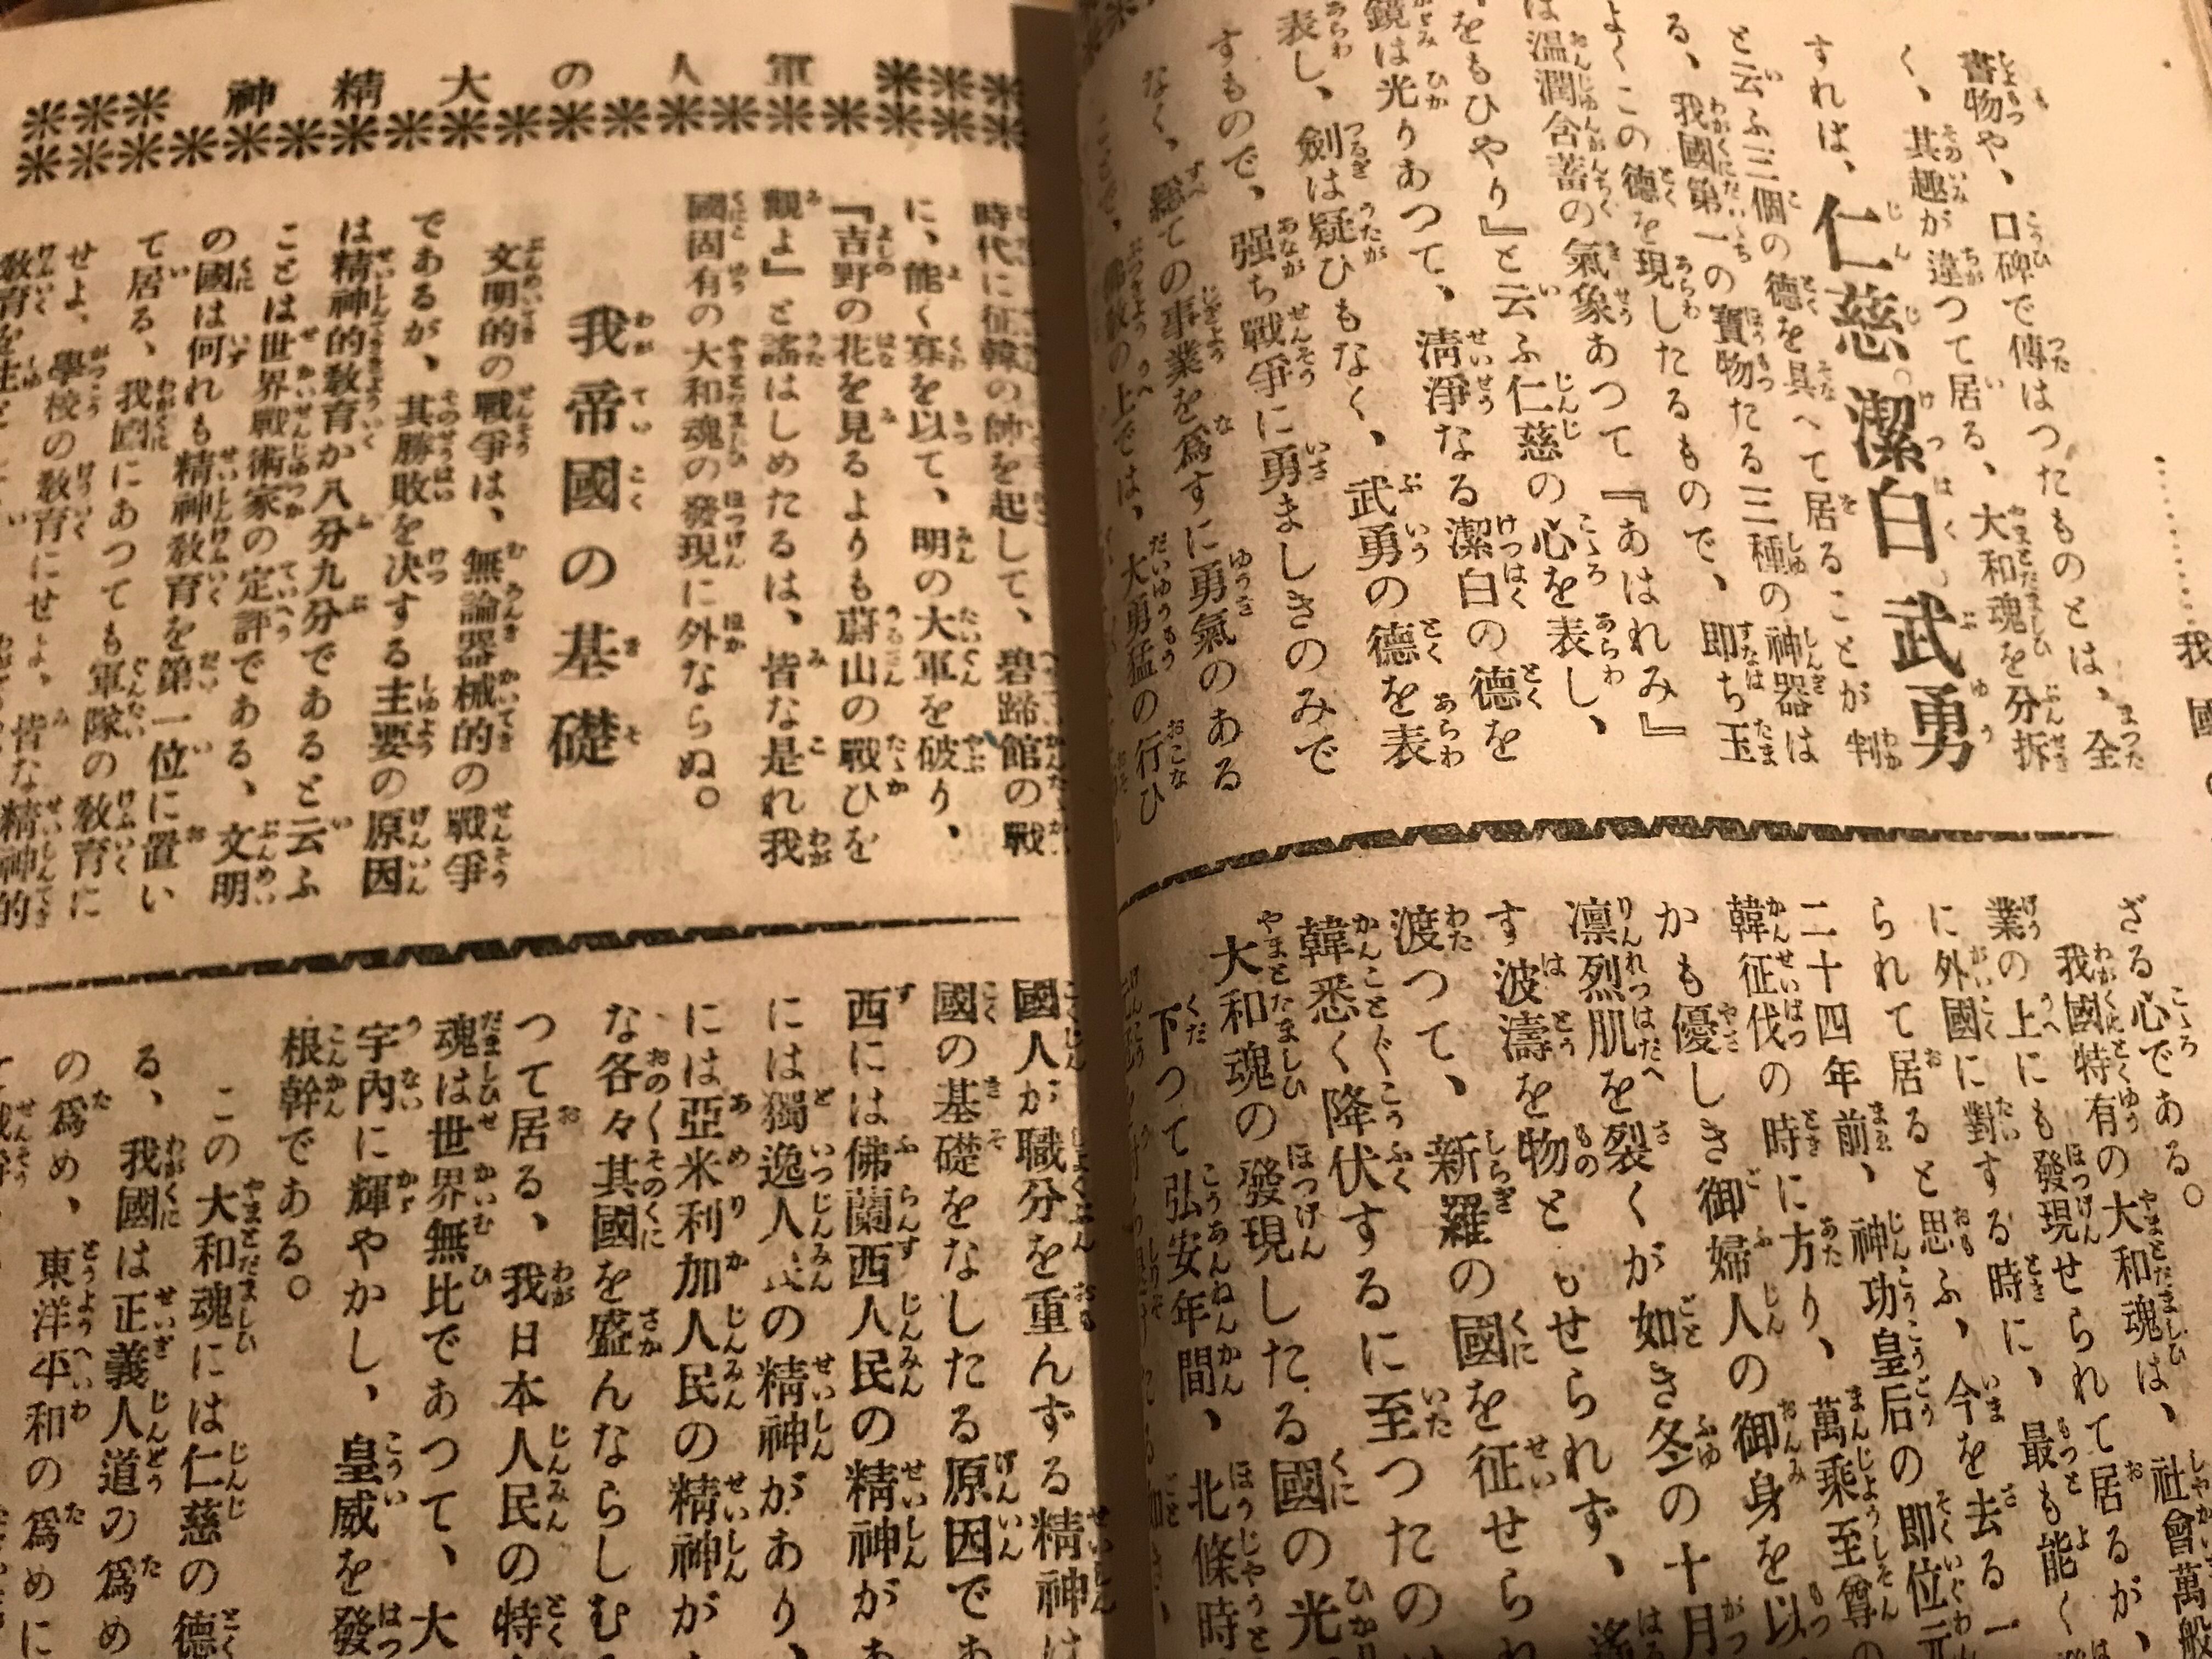 書物や、口碑で傳はつたものとは、全
く、其趣が違つて居る、大和魂を分拆
すれば、仁慈。潔白、武勇
と云ふ三個の德を具へて居ることが判
る、我國第一の寶物たる三種の神器は
よくこの德を現したるもので、即ち玉
は溫潤含蓄の氣象あつて『あはれみ』
をもひやり』と云ふ仁慈の心を表し、
鏡は光りあつて、淸淨なる潔白の德を
表し、劍は疑ひもなく、武勇の德を表
すもので、强ち戰爭に勇ましきのみで
なく、總ての事業を爲すに勇氣のある
の上では、大勇猛の行ひ
我國
ざる心である。
我國特有の大和魂は、社會萬般
業の上にも發現せられて居るが、
に外國に對する時に、最も能く
られて居ると思ふ、今を去る一
二十四年前、神功皇后の即位元
韓征伐の時に方り、萬乘至尊の
かも優しき御婦人の御身を以
凛烈肌を裂くが如き冬の十月
す波濤を物ともせられず、遙
渡つて、新羅の國を征せられ
韓悉く降伏するに至つたのは
大和魂の發現したる國の光
下つて弘安年間、北條時
軍人の大精神
時代に征韓の帥を起して、碧蹄館の戰
に、能く寡を以て、明の大軍を破り、
『吉野の花を見るよりも蔚山の戰ひを
觀よ』と謠はしめたるは、皆な是れ我
國固有の大和魂の發現に外ならぬ。
我帝國の基礎
文明的の戰爭は、無論器械的の戰爭
であるが、其勝敗を決する主要の原因
は精神的敎育か八分九分であると云ふ
ことは世界戰術家の定評である、文明
の國は何れも精神敎育を第一位に置い
て居る、我國にあつても軍隊の敎育に
せよ、學校の敎育にせよ、皆な精神的
敎育を主と
國人が職分を重んずる精神は
國の基礎をなしたる原因であ
西には佛蘭西人民の精神があ
には獨逸人民の精神があり、
には亞米利加人民の精神が
な各々其國を盛んならしむる
つて居る、我日本人民の特
魂は世界無比であつて、大
宇內に輝やかし、皇威を發
根幹である。
この大和魂には仁慈の德
る、我國は正義人道の爲め
の爲め、東洋平和の爲めに